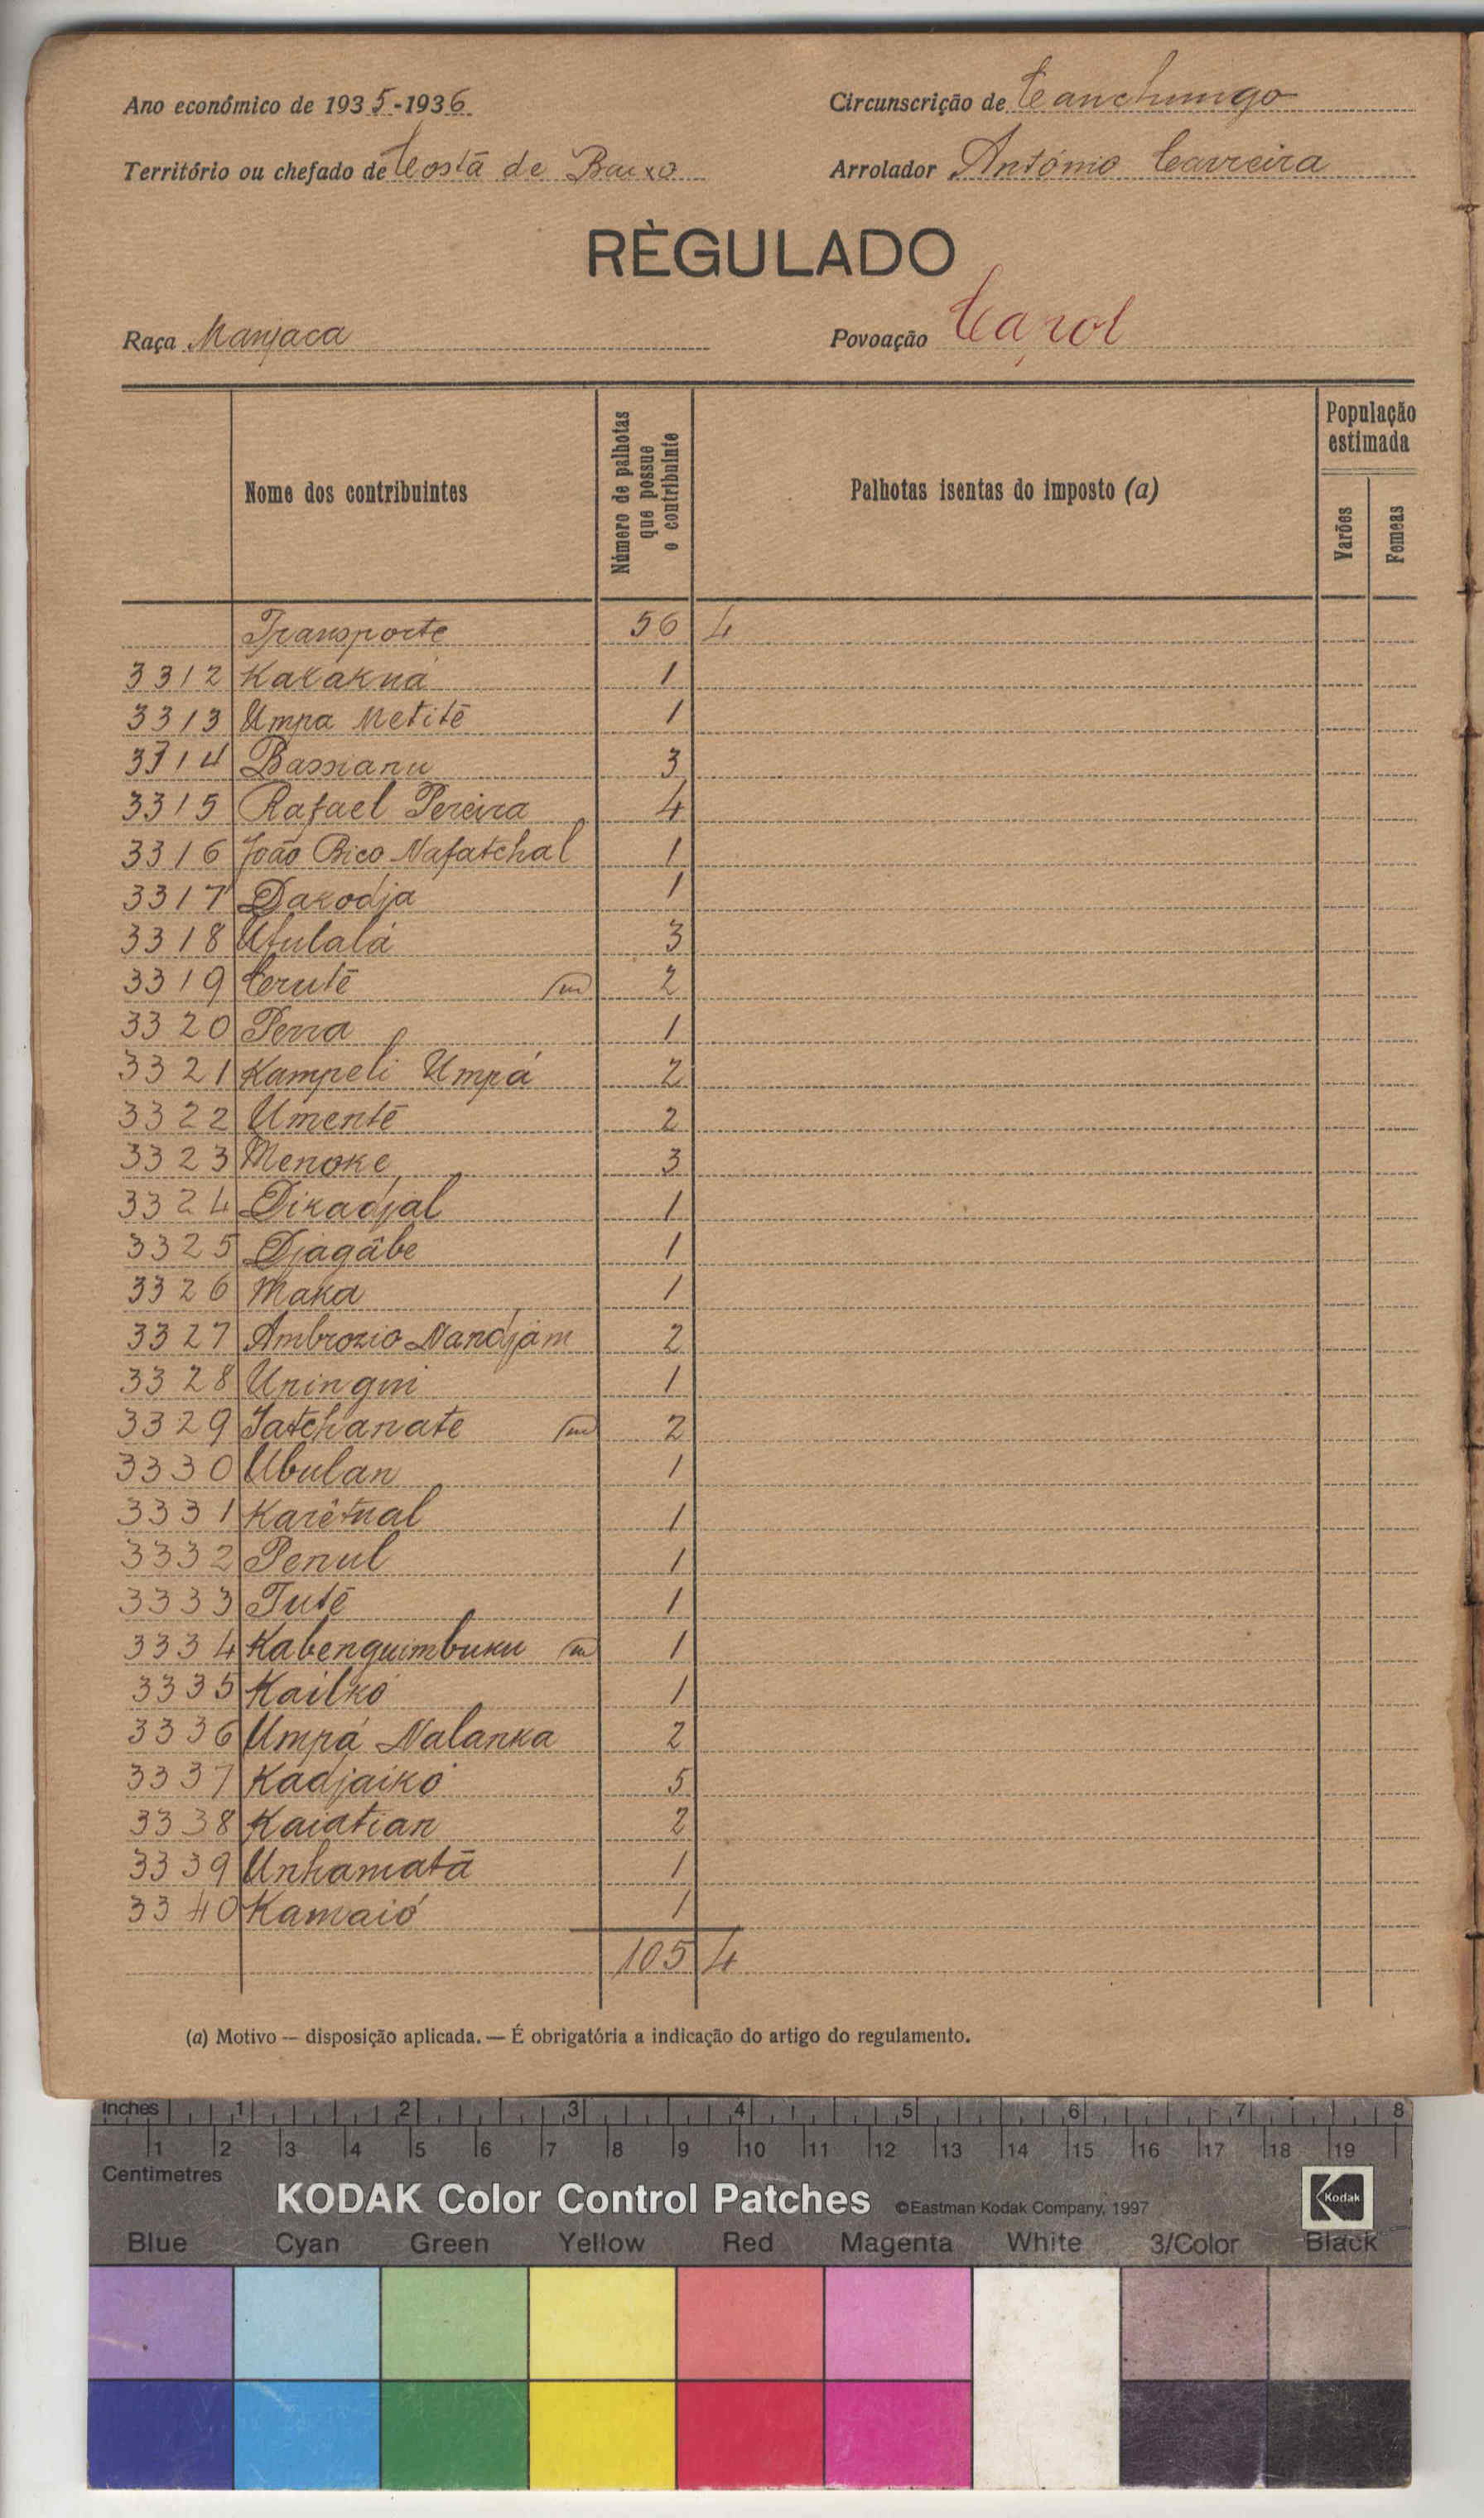 Ano económico de 1935-1936
Circunscrição de Canchungo
Território ou chefado de Costa de Baixo
Arrolador António Carreira
RÈGULADO
Raça Manjaca
Povoação
Nome dos contribuintes
Número de palhotas que possue o contribuinte
Palhotas isentas do imposto (a)
População estimada
Varões
Femeas
Transporte 56 4
3312 Kakakná 1
3313 Umpa Metitê 1
3314 Bassianu 3
3315 Rafael Pereira 4
3316 João Bico Nafatchal 1
3317 Dakodja 1
3318 Ufulalá 3
3319 Cerutê 2
3320 1
3321 Kampeli Umpá 2
3322 Umentê 2
3323 Menoke 3
3324 Dikadjal 1
3325 Djagâbe 1
3326 Maka 1
3327 Ambrozio Nandjam 2
3328 1
3329 Jatchanate 2
3330 Ubulan 1
3331 1
3332 Penul 1
3333 Tutê 1
3334 Kabenguimbuku 1
3335 Kailkó 1
3336 Umpá Nalanka 2
3337 Kadjaikó 5
3338 Kaiatian 2
3339 Unhamatã 1
3340 Kamaió 1
105 4
(a) Motivo — disposição aplicada. — É obrigatória a indicação do artigo do regulamento.
Inches 1 2 3 4 5 6 7 8
1 2 3 4 5 6 7 8 9 10 11 12 13 14 15 16 17 18 19
Centimetres
KODAK Color Control Patches ©Eastman Kodak Company, 1997 Kodak
Blue Cyan Green Yellow Red Magenta White 3/Color Black